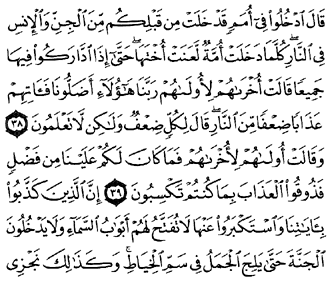 قَالَ ٱدْخُلُوا۟ فِىٓ أُمَمٍ قَدْ خَلَتْ مِن قَبْلِكُم مِّنَ ٱلْجِنِّ وَٱلْإِنسِ
فِى ٱلنَّارِ ۖ كُلَّمَا دَخَلَتْ أُمَّةٌ لَّعَنَتْ أُخْتَهَا ۖ حَتَّىٰٓ إِذَا ٱدَّارَكُوا۟ فِيهَا
جَمِيعًا قَالَتْ أُخْرَىٰهُمْ لِأُولَىٰهُمْ رَبَّنَا هَٰٓؤُلَآءِ أَضَلُّونَا فَـَٔاتِهِمْ
عَذَابًا ضِعْفًا مِّنَ ٱلنَّارِ ۖ قَالَ لِكُلٍّ ضِعْفٌ وَلَٰكِن لَّا تَعْلَمُونَ ٣٨
وَقَالَتْ أُولَىٰهُمْ لِأُخْرَىٰهُمْ فَمَا كَانَ لَكُمْ عَلَيْنَا مِن فَضْلٍ
فَذُوقُوا۟ ٱلْعَذَابَ بِمَا كُنتُمْ تَكْسِبُونَ ٣٩ إِنَّ ٱلَّذِينَ كَذَّبُوا۟
بِـَٔايَٰتِنَا وَٱسْتَكْبَرُوا۟ عَنْهَا لَا تُفَتَّحُ لَهُمْ أَبْوَٰبُ ٱلسَّمَآءِ وَلَا يَدْخُلُونَ
ٱلْجَنَّةَ حَتَّىٰ يَلِجَ ٱلْجَمَلُ فِى سَمِّ ٱلْخِيَاطِ ۚ وَكَذَٰلِكَ نَجْزِى